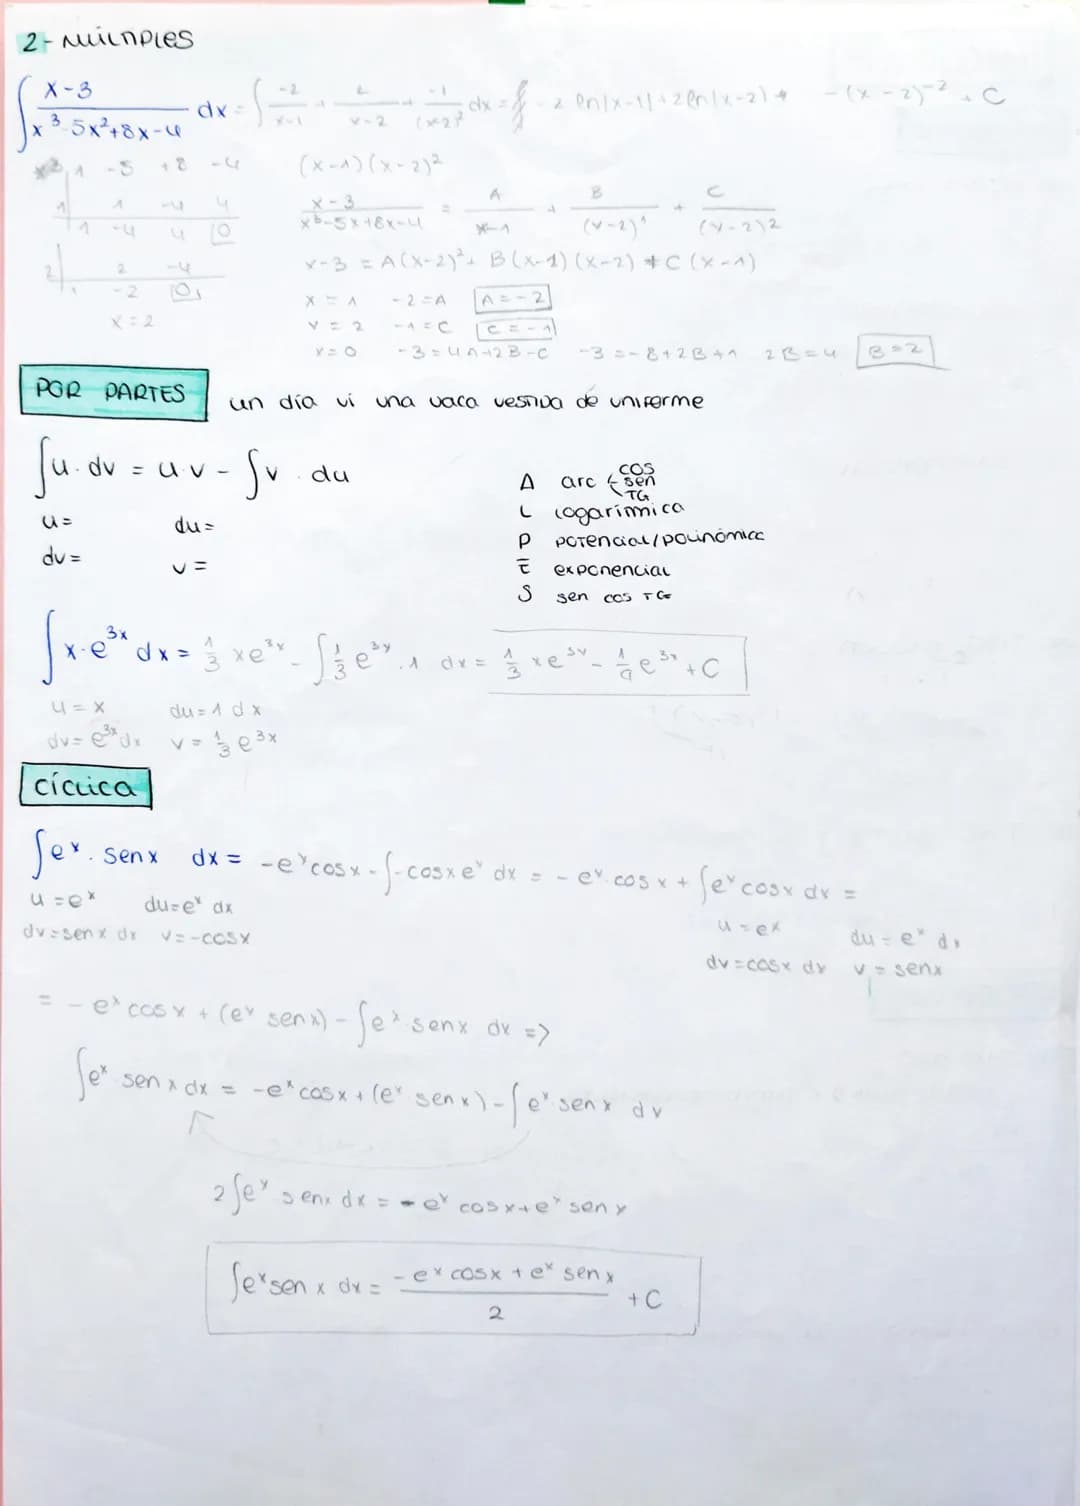 2- MÚLTIPLES
∫ x-3 / x³-5x²+8x-4 dx = ∫ -2/x-1 + 2/x-2 + -1/(x-2)² dx = -2 ln|x-1|+2ln|x-2|+ -(x-2)⁻² + C
1 -5 +8 -4 (x-1)(x-2)²
1 1 -4 4 x-3 / x³-5x+8x-4 = A/x-1 + B/(x-2)¹ + C/(x-2)²
1 -4 4 0
2 2 -4 x-3 = A(x-2)² + B(x-1)(x-2) + C(x-1)
1 -2 0 x=1 -2=A A=-2
x=2 x=2 -1=C C=-1
x=0 -3=4A+2B-C -3=-8+2B+1 2B=4 B=2
POR PARTES un día vi una vaca vestida de uniforme
∫u·dv = u·v - ∫v·du
u= du=
dv= v=
A arc cos sen TG
L logarímica
P potencial/polinómica
E exponencial
S sen cos TG
∫x·e³ˣ dx = 1/3 xe³ˣ - ∫1/3 e³ˣ·1 dx = 1/3 xe³ˣ - 1/9 e³ˣ + C
u=x du=1dx
dv=e³ˣdx v=1/3 e³ˣ
CÍCLICA
∫eˣ·senx dx = -eˣcosx-∫-cosxeˣ dx = -eˣ·cosx+∫eˣcosx dx =
u=eˣ du=eˣ dx u=eˣ du=eˣ dx
dv=senx dx v=-cosx dv=cosx dx v=senx
= -eˣcosx+(eˣ senx)-∫eˣ·senx dx =>
∫eˣ senx dx = -eˣcosx+(eˣ·senx)-∫eˣ·senx dx
2∫eˣ senx dx = -eˣ cosx+eˣ senx
∫eˣsenx dx = -eˣcosx+eˣ senx / 2 + C